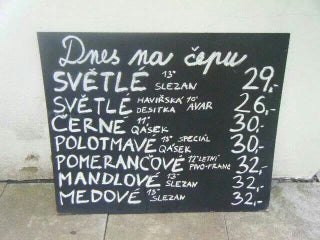 Dnes na čepu
SVĚTLÉ 13° SLEZAN 29,-
SVĚTLÉ HAVÍŘSKÁ 10° DESÍTKA AVAR 26,-
ČERNÉ 11° QÁSEK 30,-
POLOTMAVÉ 13° SPECIÁL QÁSEK 30,-
POMERANČOVÉ 12° LETNÍ PIVO-FRANC 32,-
MANDLOVÉ 13° SLEZAN 32,-
MEDOVÉ 13° SLEZAN 32,-